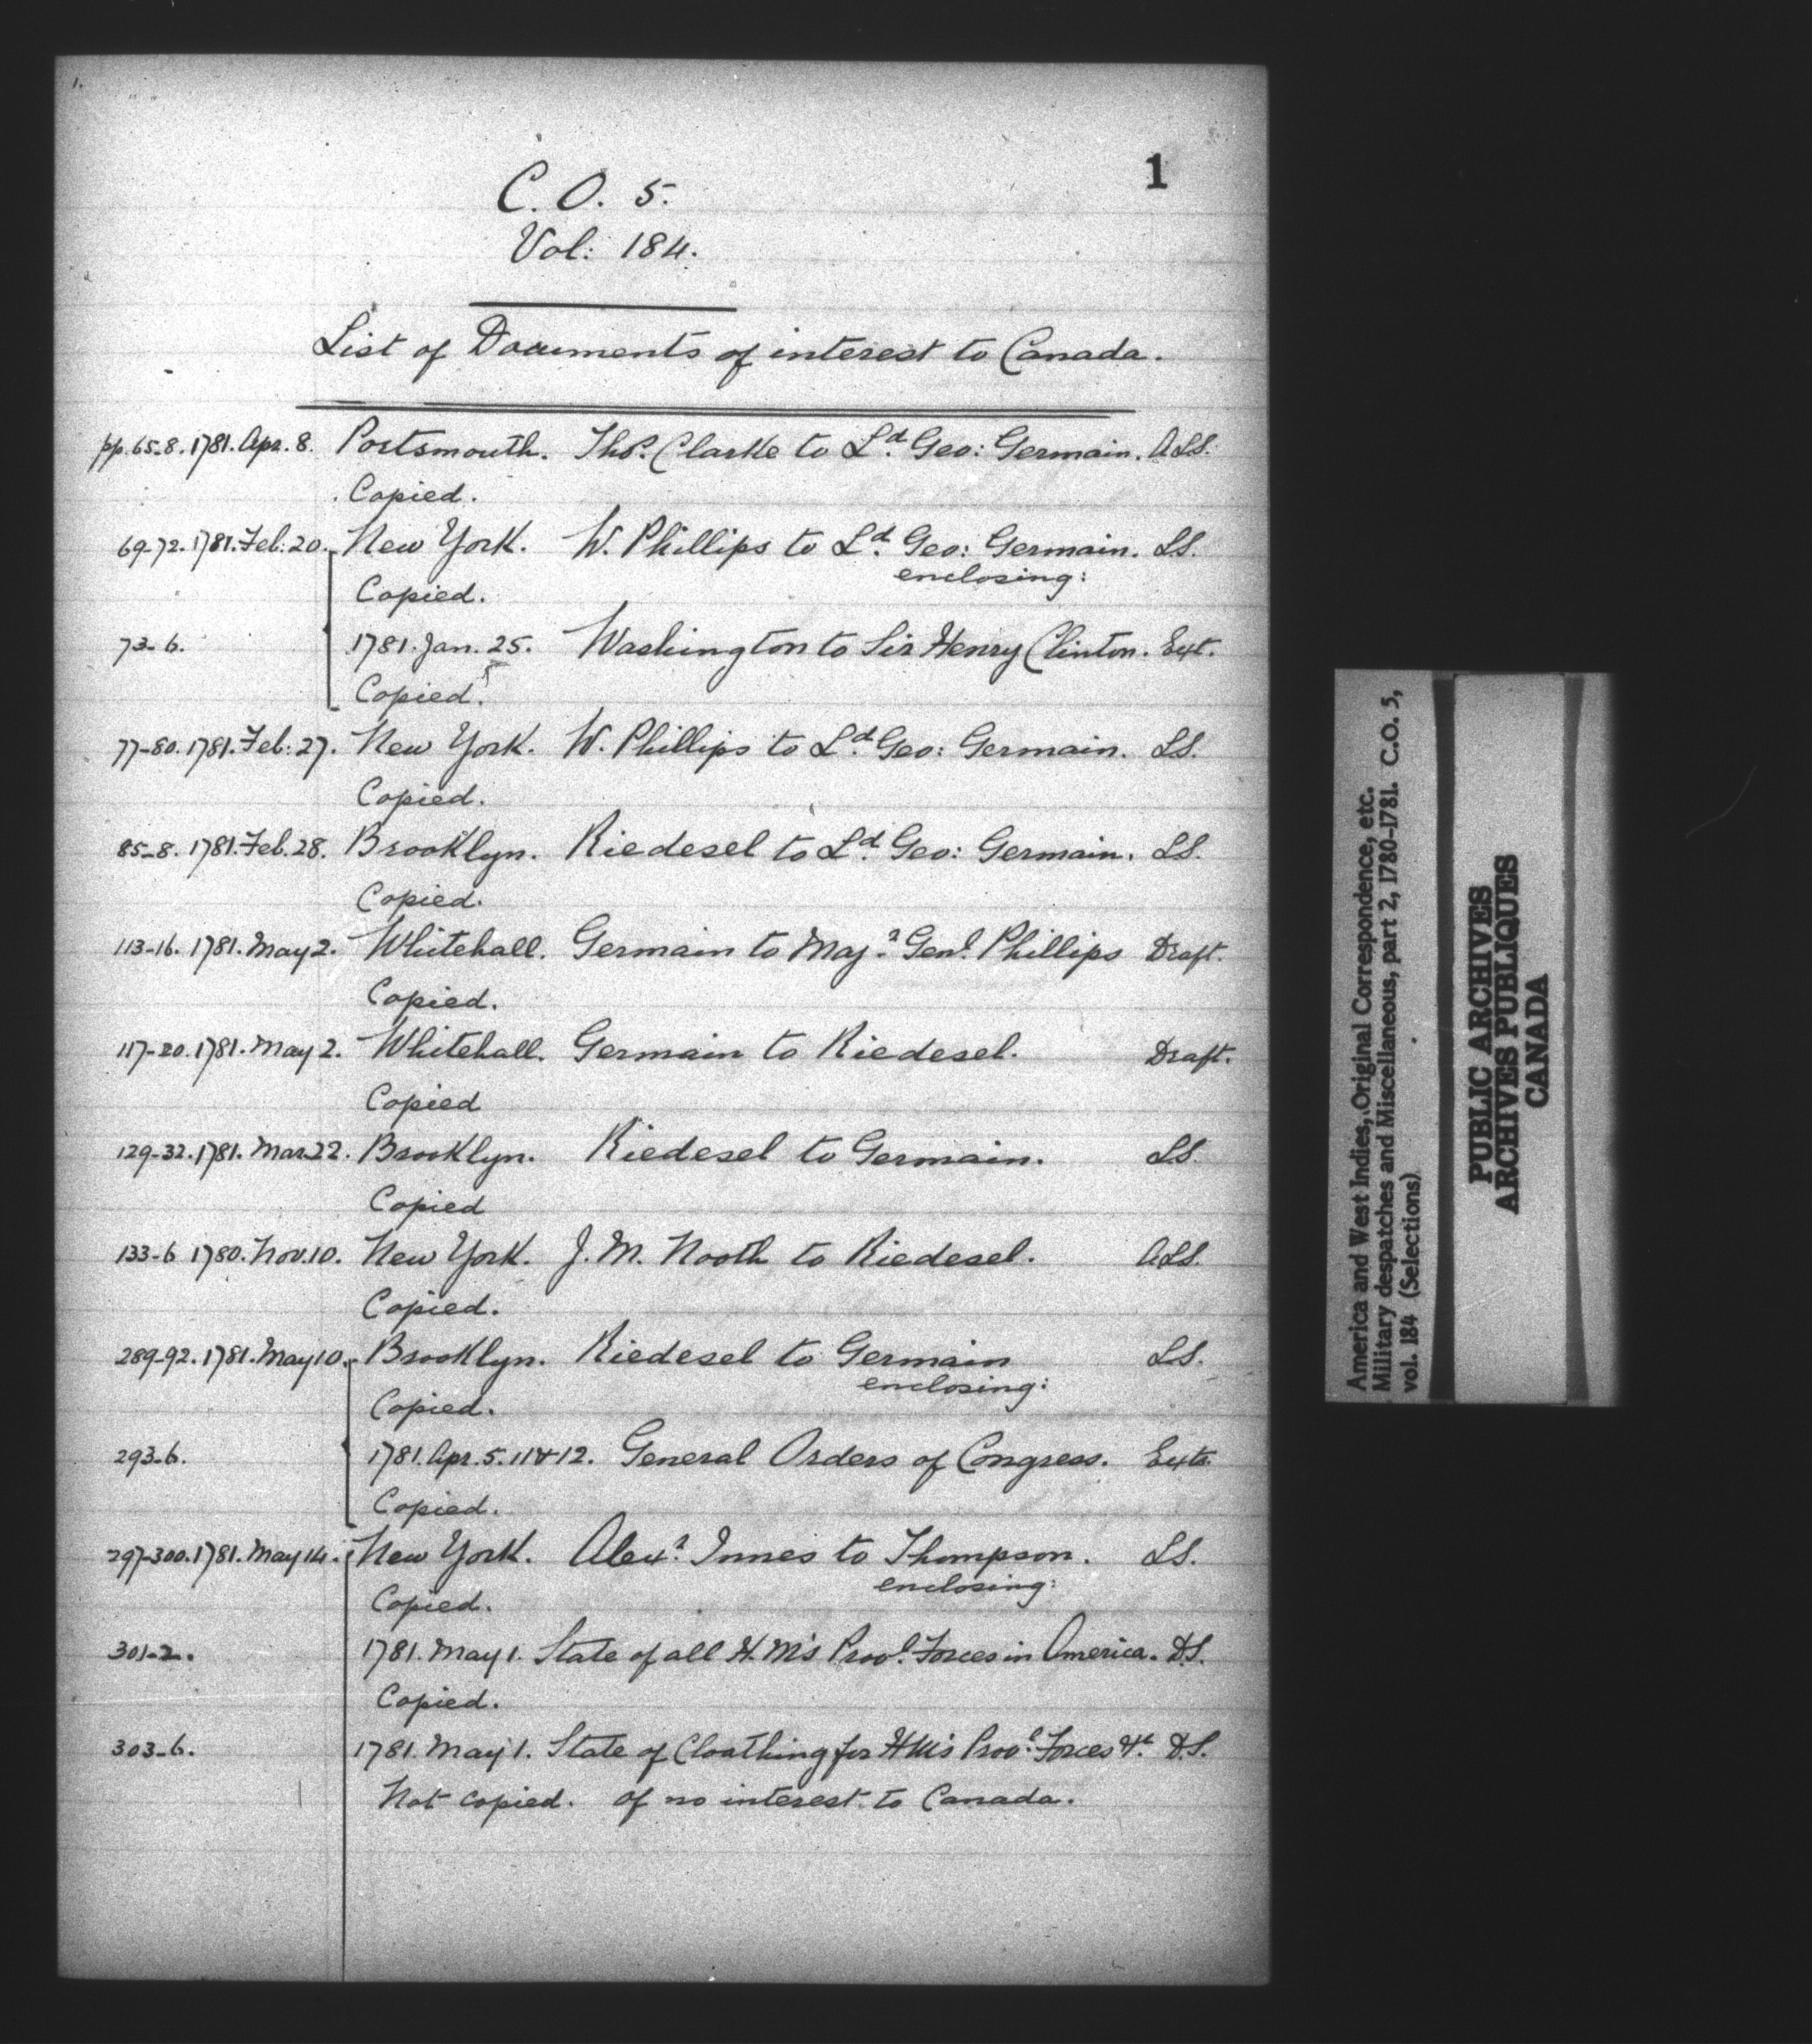 1.
1
C. O. 5.
Vol: 184.
List of Documents of interest to Canada.
pp. 65-8. 1781. Apr. 8. Portsmouth. Thos. Clarke to Ld. Geo: Germain. A.L.S.
Copied.
69-72. 1781. Feb: 20. New York. W. Phillips to Ld. Geo: Germain. L.S.
enclosing:
Copied.
73-6. 1781. Jan. 25. Washington to Sir Henry Clinton. Ext.
Copied.
77-80. 1781. Feb: 27. New York. W. Phillips to Ld. Geo: Germain. L.S.
Copied.
85-8. 1781. Feb. 28. Brooklyn. Riedesel to Ld. Geo: Germain. L.S.
Copied.
113-16. 1781. May 2. Whitehall. Germain to Majr. Genl. Phillips Draft.
Copied.
117-20. 1781. May 2. Whitehall. Germain to Riedesel. Draft.
Copied
129-32. 1781. Mar. 22. Brooklyn. Riedesel to Germain. L.S.
Copied
133-6 1780. Nov. 10. New York. J. M. Nooth to Riedesel. A.L.S.
Copied.
289-92. 1781. May 10. Brooklyn. Riedesel to Germain L.S.
enclosing:
Copied.
293-6. 1781. Apr. 5. 11 & 12. General Orders of Congress. Exts.
Copied.
297-300. 1781. May 14. New York. Alexr. Innes to Thompson. L.S.
enclosing:
Copied.
301-2. 1781. May 1. State of all H. M's Provl. Forces in America. D.S.
Copied.
303-6. 1781. May 1. State of Cloathing for H M's Provl. Forces &c. D.S.
Not copied. of no interest to Canada.
America and West Indies, Original Correspondence, etc.
Military despatches and Miscellaneous, part 2, 1780-1781. C.O. 5,
vol. 184 (Selections)
PUBLIC ARCHIVES
ARCHIVES PUBLIQUES
CANADA